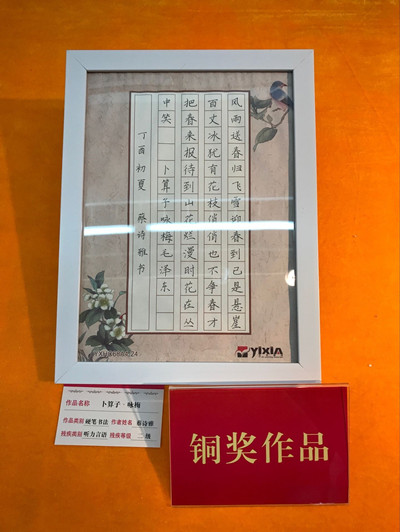 风雨送春归飞雪迎春到已是悬崖
百丈冰犹有花枝俏俏也不争春才
把春来报待到山花烂漫时花在丛
中笑 卜算子咏梅毛泽东
丁酉初夏 蔡诗雅书
YIXIN
作品名称 卜算子·咏梅
作品类别 硬笔书法 作者姓名 蔡诗雅
残疾类别 听力言语 残疾等级 二级
铜奖作品